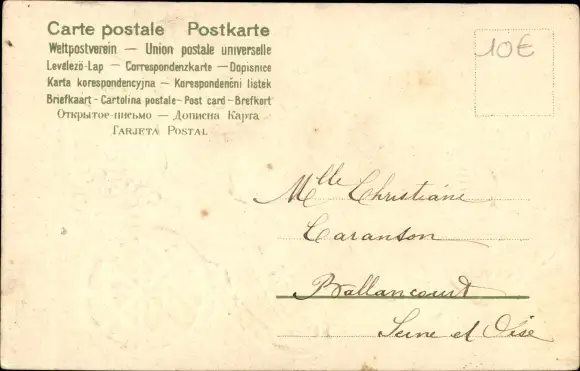 Carte postale Postkarte
Weltpostverein — Union postale universelle
Levelező-Lap — Correspondenzkarte — Dopisnice
Karta korespondencyjna — Korespondenční listek
Briefkaart - Cartolina postale - Post card - Brefkort
Открытое-письмо — Дописна Карта
TARJETA POSTAL
10€
Mlle Christiane
Caranton
Ballancourt
Seine et Oise